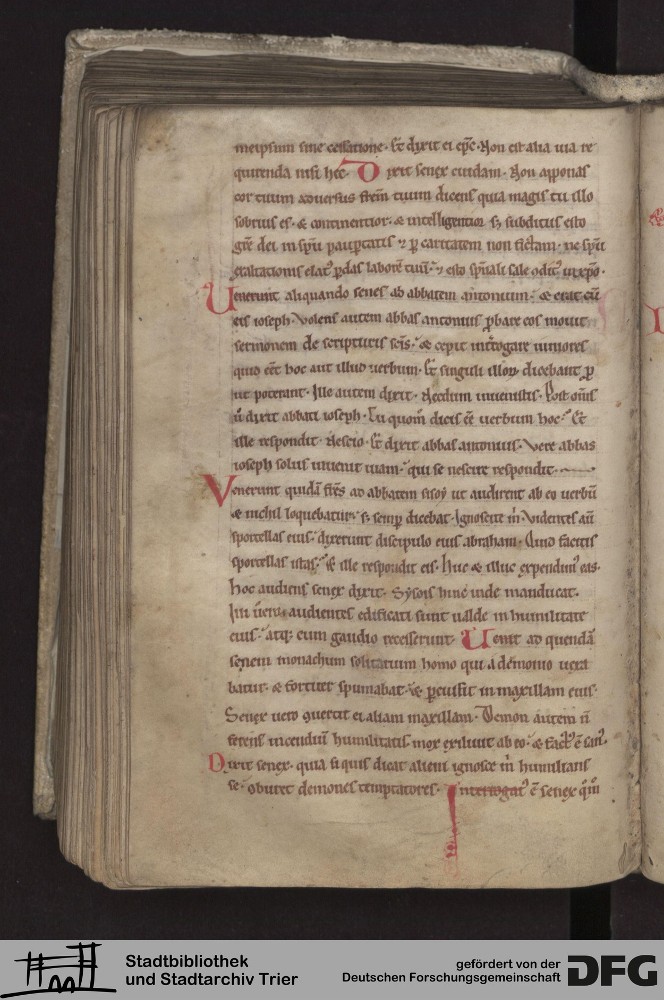 meipsum sine cessatione. Et dixit ei epc. Non est alia uia re
quirenda nisi hec. Dixit senex cuidam. Non apponas
cor tuum aduersus frem tuum dicens quia magis tu illo
sobrius es. & continentior. & intelligentior. sz subditus esto
gre dei in spu paupertatis & per caritatem non fictam. ne spu
exaltationis elat' perdas laborem tuum. & esto spuali sale condit' in xpo.
Uenerunt aliquando senes ad abbatem antonium. & erat cu
eis ioseph. Volens autem abbas antonius probare eos mouit
sermonem de scripturis scis. & cepit interrogare iuniores
quid eet hoc aut illud uerbum. Et singuli illoꝝ dicebant p
ut poterant. Ille autem dixit. Necdum inuenistis. Post omis
u dixit abbati ioseph. Tu quom dicis ee uerbum hoc? Et
ille respondit. Nescio. Et dixit abbas antonius. Vere abbas
ioseph solus inuenit uiam. qui se nescire respondit.
Venerunt quida fres ad abbatem sisoy ut audirent ab eo uerbu
& nichil loquebatur. sz semp dicebat. Ignoscite m. Videntes au
sportellas eius. dixerunt discipulo eius abraham. Quid facitis
sportellas istas? & ille respondit eis. Huc & illuc expendim' eas.
Hoc audiens senex dixit. Sysois hinc inde manducat.
Illi uero audientes edificati sunt ualde in humilitate
eius. atq; cum gaudio recesserunt. Uenit ad quenda
senem monachum solitarium homo qui a demonio uexa
batur. & fortiter spumabat. & percussit in maxillam eius.
Senex uero conuertit ei aliam maxillam. Demon autem n
ferens incendiu humilitatis mox exiluit ab eo. & fact' e san'.
Dixit senex. quia si quis dicat alicui ignosce m humilians
se. comburet demones temptatores. Interrogat' e senex quo
Stadtbibliothek
und Stadtarchiv Trier
gefördert von der
Deutschen Forschungsgemeinschaft
DFG